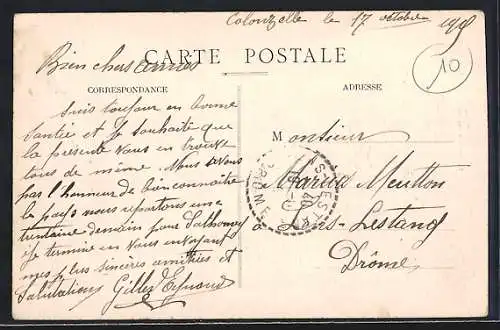 Colonzelle le 17 octobre
CARTE POSTALE
10
Bien chers amies
CORRESPONDANCE
ADRESSE
Suis toujour en bonne
Santée et Je souhaite que
la presente Vous en trouve
tous de même. Nous avons
pas l'honneur de bien connaitre
le pays nous repartons une
trentaine demain pour
Je termine en Vous envoyant
mes plus sincères amitiées et
Salutations Gilles
Monsieur
Marius
Lens-Lestang
Drôme